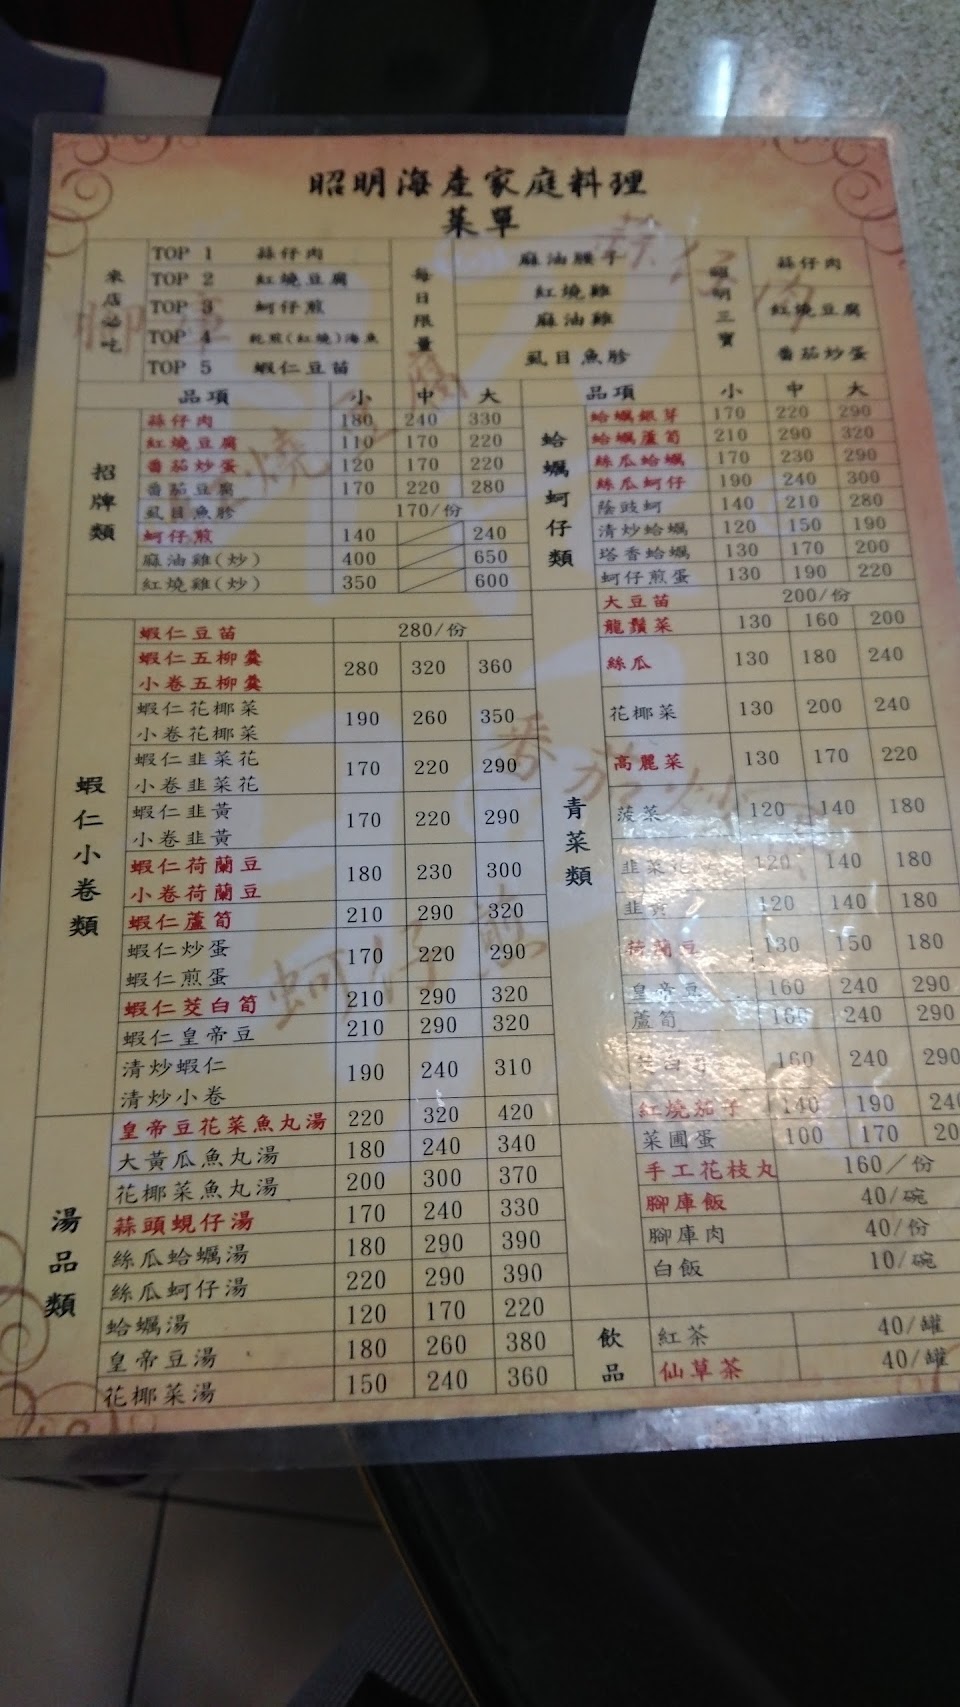 昭明海產家庭料理
菜單
來店必吃
TOP 1 蒜仔肉
TOP 2 紅燒豆腐
TOP 3 蚵仔煎
TOP 4 乾煎(紅燒)海魚
TOP 5 蝦仁豆苗
每日限量
麻油腰子
紅燒雞
麻油雞
虱目魚胗
昭明三寶
蒜仔肉
紅燒豆腐
番茄炒蛋
品項 小 中 大
招牌類
蒜仔肉 180 240 330
紅燒豆腐 110 170 220
番茄炒蛋 120 170 220
番茄豆腐 170 220 280
虱目魚胗 170/份
蚵仔煎 140 240
麻油雞(炒) 400 650
紅燒雞(炒) 350 600
蝦仁小卷類
蝦仁豆苗 280/份
蝦仁五柳羹
小卷五柳羹 280 320 360
蝦仁花椰菜
小卷花椰菜 190 260 350
蝦仁韭菜花
小卷韭菜花 170 220 290
蝦仁韭黃
小卷韭黃 170 220 290
蝦仁荷蘭豆
小卷荷蘭豆 180 230 300
蝦仁蘆筍 210 290 320
蝦仁炒蛋
蝦仁煎蛋 170 220 290
蝦仁茭白筍 210 290 320
蝦仁皇帝豆 210 290 320
清炒蝦仁
清炒小卷 190 240 310
湯品類
皇帝豆花菜魚丸湯 220 320 420
大黃瓜魚丸湯 180 240 340
花椰菜魚丸湯 200 300 370
蒜頭蜆仔湯 170 240 330
絲瓜蛤蠣湯 180 290 390
絲瓜蚵仔湯 220 290 390
蛤蠣湯 120 170 220
皇帝豆湯 180 260 380
花椰菜湯 150 240 360
品項 小 中 大
蛤蠣蚵仔類
蛤蠣銀芽 170 220 290
蛤蠣蘆筍 210 290 320
絲瓜蛤蠣 170 230 290
絲瓜蚵仔 190 240 300
蔭豉蚵 140 210 280
清炒蛤蠣 120 150 190
塔香蛤蠣 130 170 200
蚵仔煎蛋 130 190 220
青菜類
大豆苗 200/份
龍鬚菜 130 160 200
絲瓜 130 180 240
花椰菜 130 200 240
高麗菜 130 170 220
菠菜 120 140 180
韭菜花 120 140 180
韭黃 120 140 180
荷蘭豆 130 150 180
皇帝豆 160 240 290
蘆筍 160 240 290
茭白筍 160 240 290
紅燒茄子 140 190 240
菜圃蛋 100 170 20
手工花枝丸 160/份
腳庫飯 40/碗
腳庫肉 40/份
白飯 10/碗
飲品
紅茶 40/罐
仙草茶 40/罐